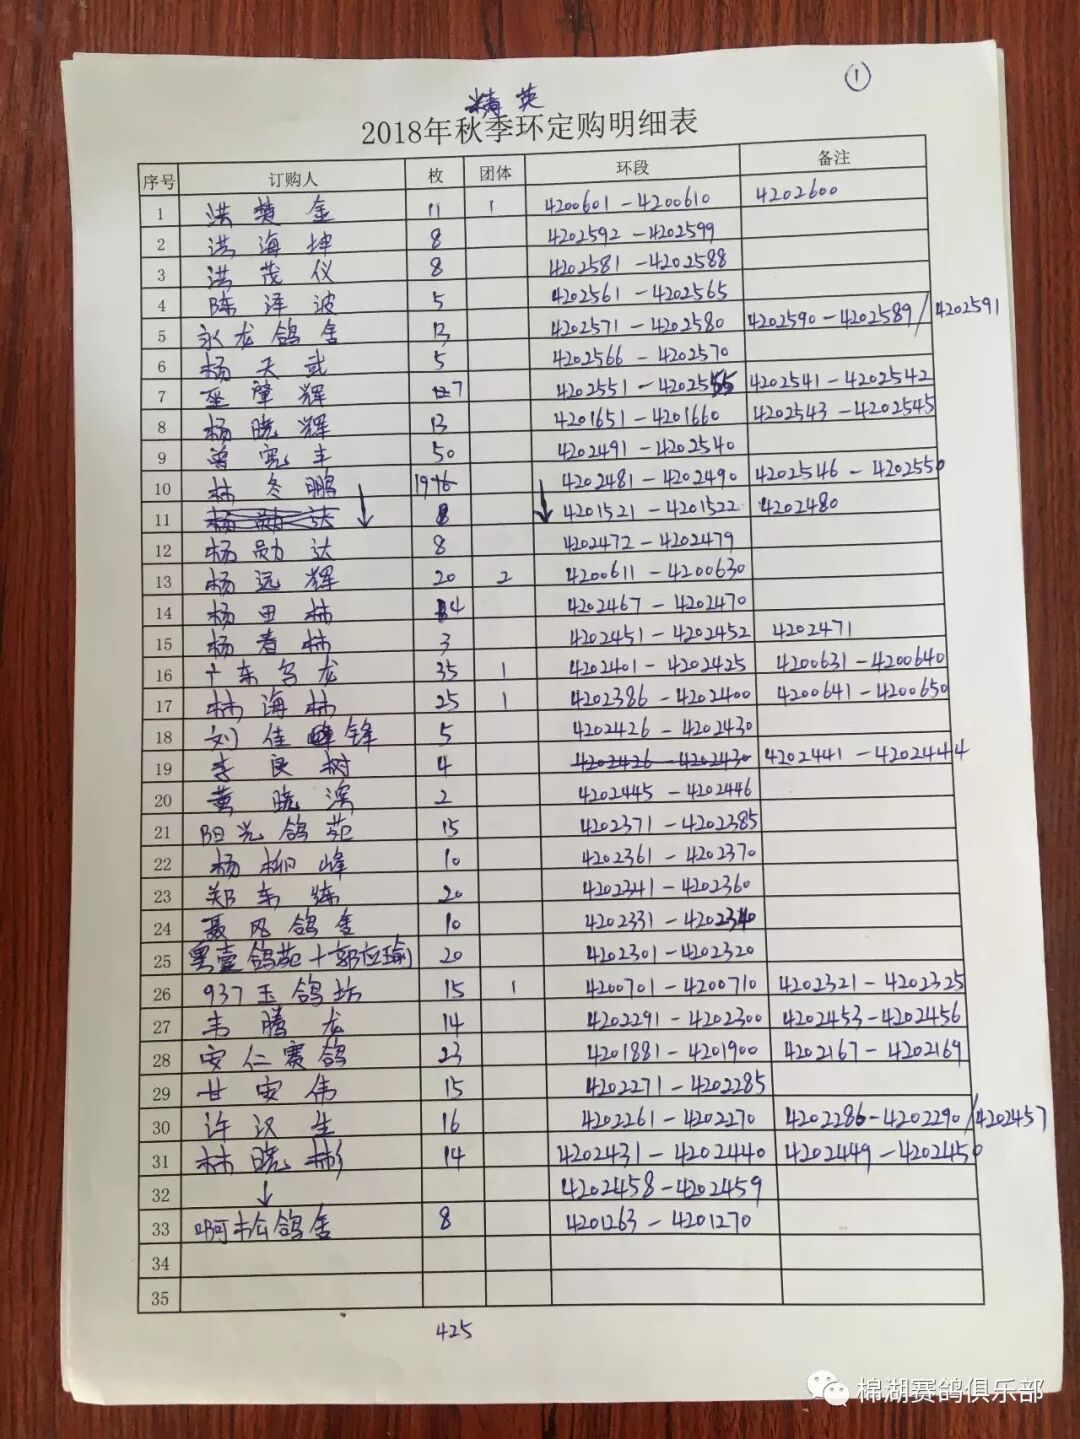 ①
精英
2018年秋季环定购明细表
序号 订购人 枚 团体 环段 备注
1 洪楚金 11 1 4200601-4200610 4202600
2 洪海坤 8 4202592-4202599
3 洪茂仪 8 4202581-4202588
4 陈泽波 5 4202561-4202565
5 永龙鸽舍 13 4202571-4202580 4202590-4202589/4202591
6 杨天武 5 4202566-4202570
7 巫肇辉 7 4202551-4202555 4202541-4202542
8 杨晓辉 13 4201651-4201660 4202543-4202545
9 曾宪丰 50 4202491-4202540
10 林冬鹏 19 4202481-4202490 4202546-4202550
11 杨勋达 8 4201521-4201522 4202480
12 杨勋达 8 4202472-4202479
13 杨远辉 20 2 4200611-4200630
14 杨田林 4 4202467-4202470
15 杨春林 3 4202451-4202452 4202471
16 广东乌龙 35 1 4202401-4202425 4200631-4200640
17 林海林 25 1 4202386-4202400 4200641-4200650
18 刘佳锋 5 4202426-4202430
19 李良树 4 4202426-4202430 4202441-4202444
20 黄晓深 2 4202445-4202446
21 阳光鸽苑 15 4202371-4202385
22 杨柳峰 10 4202361-4202370
23 郑东炼 20 4202341-4202360
24 聂风鸽舍 10 4202331-4202340
25 壹鸽苑+郭应瑜 20 4202301-4202320
26 937玉鸽坊 15 1 4200701-4200710 4202321-4202325
27 韦腾龙 14 4202291-4202300 4202453-4202456
28 安仁赛鸽 23 4201881-4201900 4202167-4202169
29 甘安伟 15 4202271-4202285
30 许汉生 16 4202261-4202270 4202286-4202290/4202457
31 林晓彬 14 4202431-4202440 4202449-4202450
32 4202458-4202459
33 啊松鸽舍 8 4201263-4201270
34
35
425
棉湖赛鸽俱乐部